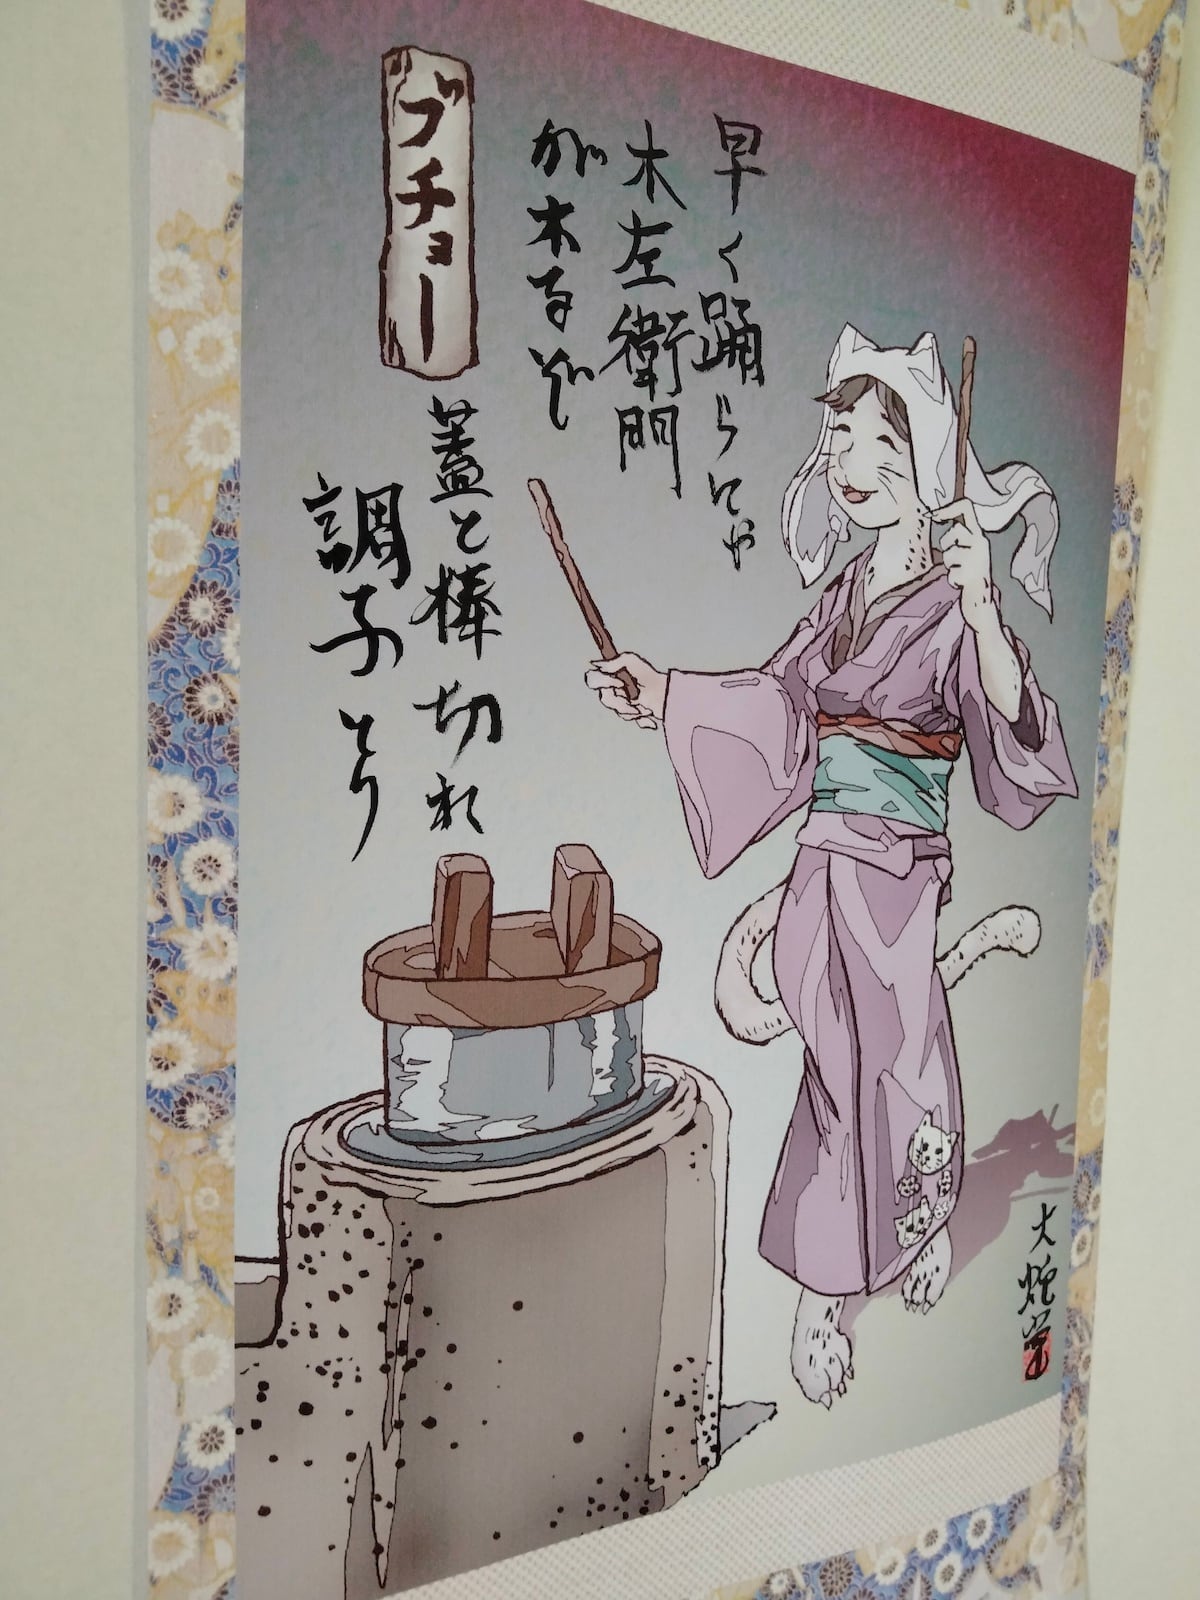 早く踊らにゃ
木左衛門
が来るぞ
ブチョー
蓋と棒切れ
調子とり
大蛇堂